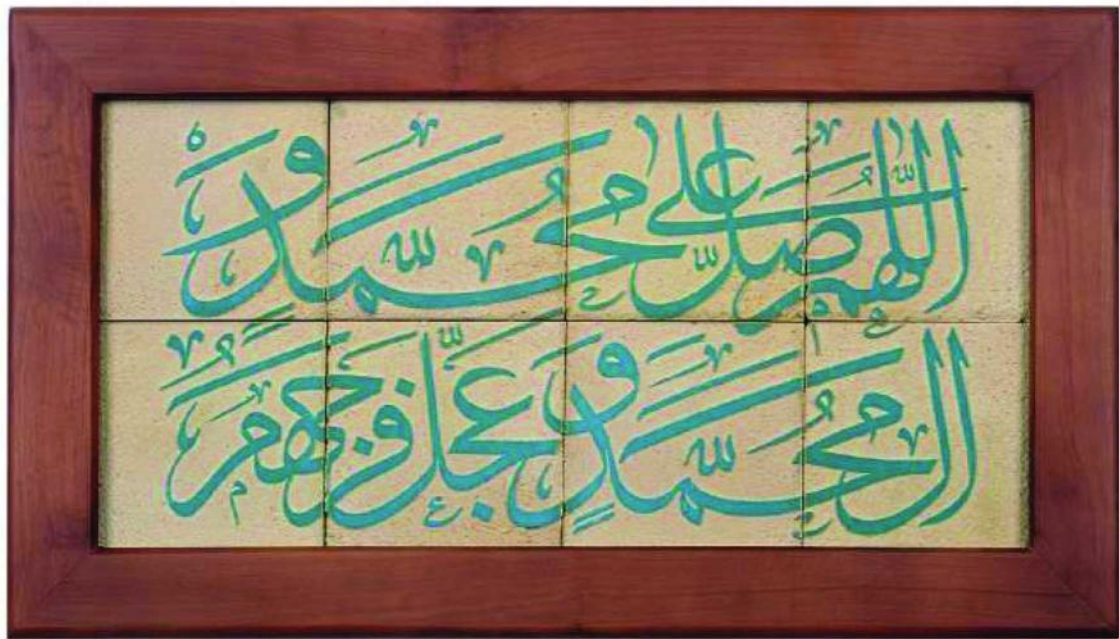 اللهم صل علی محمد و
ال محمد و عجل فرجهم